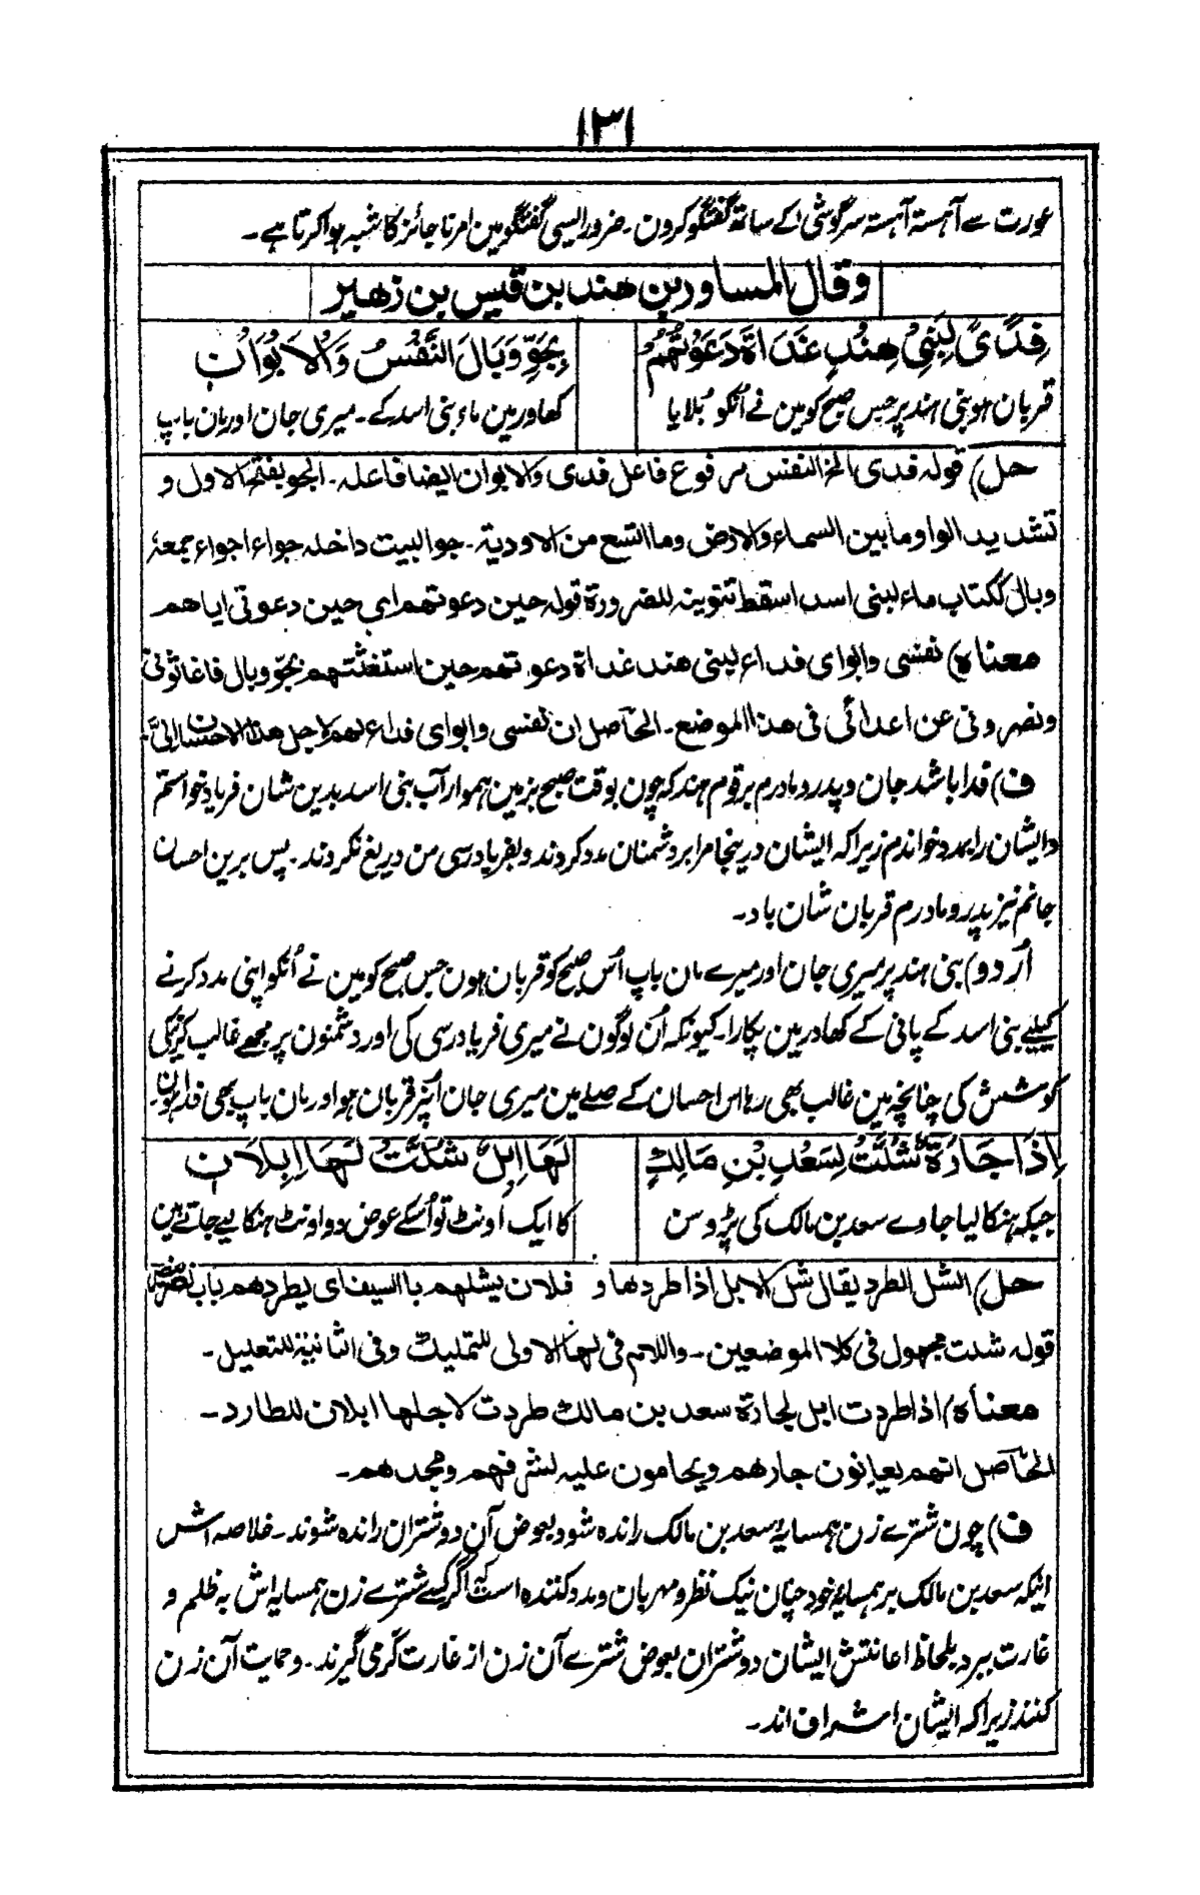 ۱۳۱
عورت سے آہستہ آہستہ سرگوشی کے ساتھ گفتگو کرون۔ ضرور ایسی گفتگو مین امر ناجائز کا شبہ ہوا کرتا ہے۔
وقال المساور بن هند بن قيس بن زهير
فِدًى لِبَنِي هِنْدٍ غَدَاةَ دَعَوْتُهُمْ بِجَوِّ وَبَالَ النَّفْسُ وَالْاَبَوَانِ
قربان ہو بنی ہند پر جس صبح کو مین نے اُنکو بُلایا کھاور مین ماء بنی اسد کے۔ میری جان اور مان باپ
حل) قوله فدى الخ النفس مرفوع فاعل فدى والابوان ايضا فاعله۔ الجو بفتح الاول و
تشديد الواو ما بين السماء والارض وما اتسع من الاودية۔ جو البيت داخله جواء اجواء جمعهٗ
وبال ككتاب ماء لبنى اسد اسقط تنوينه للضرورة قوله حين دعوتهم اى حين دعوتى اياهم
معناه) نفسى وابواى فداء لبنى هند غداة دعوتهم حين استغثتهم بجوّ وبال فاغاثونى
ونصرونى عن اعدائى فى هذا الموضع۔ الحاصل ان نفسى وابواى فداء لهم لاجل هذا الاحسان الىَّ۔
ف) فدا باشد جان و پدر و مادرم بر قوم ہند کہ چون بوقت صبح بزمین ہموار آب بنی اسد بدین شان فریاد خواستم
و ایشان را بمدد خواندم زیرا کہ ایشان درینجا مرا بر دشمنان مدد کردند و بفریادرسی من دریغ نکردند۔ پس برین احسان
جانم نیز پدر و مادرم قربان شان باد۔
اُردو) بنی ہند پر میری جان اور میرے مان باپ اُس صبح کو قربان ہون جس صبح کو مین نے اُنکو اپنی مدد کرنے
کیلیے بنی اسد کے پانی کے کھادر مین پکارا۔ کیونکہ اُن لوگون نے میری فریادرسی کی اور دشمنون پر مجھے غالب کرنیکی
کوشش کی چنانچہ مین غالب بھی رہا اس احسان کے صلے مین میری جان اُنپر قربان ہو اور مان باپ بھی فدا ہون۔
اِذَا جَارَةٌ شُلَّتْ لِسَعْدِ بْنِ مَالِكٍ لَهَا اِبِلٌ شُلَّتْ لَهَا اِبِلَانِ
جبکہ ہنکا لیا جاوے سعد بن مالک کی پڑوسن کا ایک اونٹ تو اُسکے عوض دو اونٹ ہنکا لیے جاتے ہین
حل) الشل الطرد يقال شل الابل اذا طردها و فلان يشلهم بالسيف اى يطردهم باب نصر
قوله شلت مجهول فى كلا الموضعين۔ واللام فى لها الاولى للتمليك وفى الثانية للتعليل۔
معناه) اذا طردت ابل لجارة سعد بن مالك طردت لاجلها ابلان للطارد۔
الحاصل انهم يعاونون جارهم ويحامون عليه لشرفهم ومجدهم۔
ف) چون شترے زن ہمسایۂ سعد بن مالک راندہ شود بعوض آن دو شتران راندہ شوند۔ خلاصہ اش
اینکہ سعد بن مالک بر ہمسایۂ خود چنان نیک نظر و مہربان و مدد کنندہ است کہ اگر کسے شترے زن ہمسایہ اش بہ ظلم و
غارت ببرد بلحاظ اعانتش ایشان دو شتران بعوض شترے آن زن از غارت گر می گیرند۔ و حمایت آن زن
کنند زیرا کہ ایشان اشراف اند۔